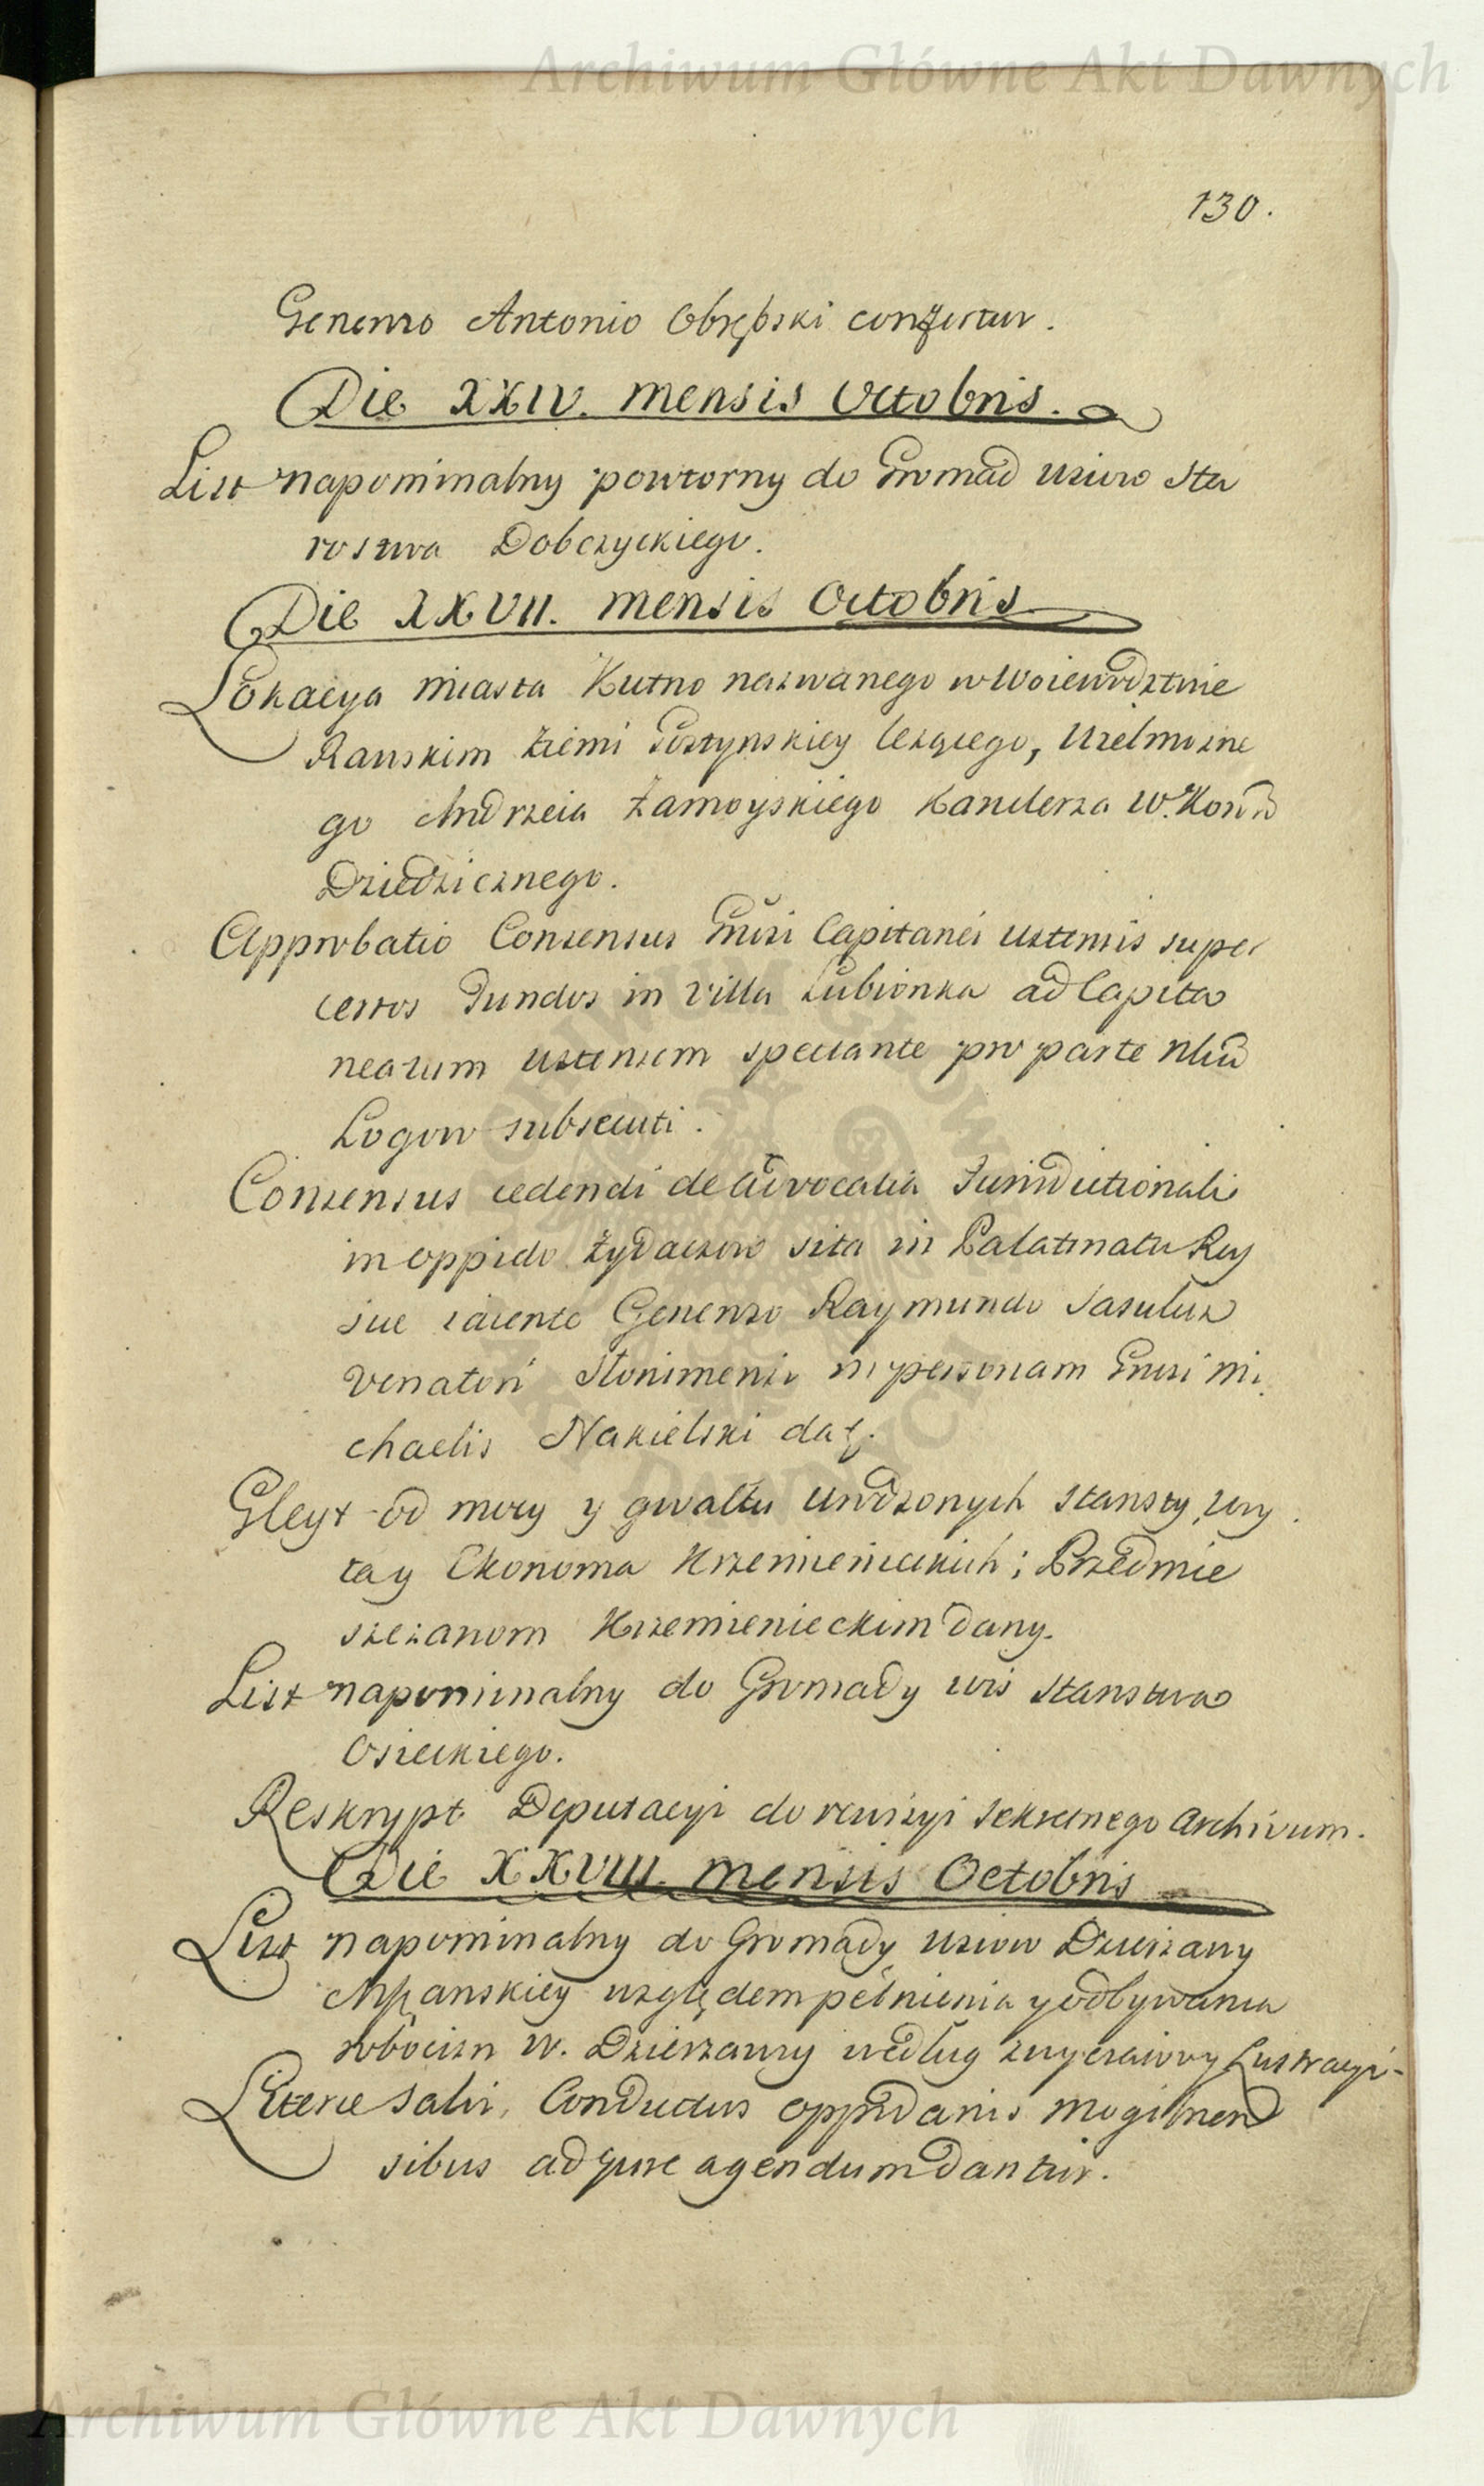 Archiwum Główne Akt Dawnych
130.
Generoso Antonio Obrębski confertur.
Die XXIV. mensis Octobris.
List napominalny powtorny do Gromad wsiow Sta
rostwa Dobczyckiego.
Die XXVII. mensis Octobris
Lokacya miasta Kutno nazwanego w Woiewodztwie
Rawskim Ziemi Gostynskiey lezącego, Wielmozne
go Andrzeia Zamoyskiego Kanclerza W. Koron
Dziedzicznego.
Approbatio Consensus Gnrsi Capitanei Ustensis super
certos Fundos in Villa Lubionka ad Capita
neatum Ustensem spectante pro parte
Logow subsecuti.
Consensus cedendi de Advocatia Jurisdictionali
in oppido Zydaczow sita in Palatinatu Rus
siae iacente Generoso Raymundo
Venatori Slonimensi in personam Gnrsi Mi
chaelis Nakielski datq.
Gleyt od mocy y gwałtu Urodzonych Starosty, Wóy
ta y Ekonoma Krzemienieckich; Przedmie
szczanom Krzemienieckim dany.
List napominalny do Gromady wsi Starostwa
Osieckiego.
Reskrypt Deputacyi do rewizyi Sekretnego Archivum.
Die XXVIII. mensis Octobris
List napominalny do Gromady wsiow Dzierzawy
względem pełnienia y odbywania
robocizn W. Dzierzawcy według zwyczaiowy Lustracyi-
Literae Salvi Conductus oppidanis Mogilnen
sibus ad jure agendum dantur.
Archiwum Główne Akt Dawnych